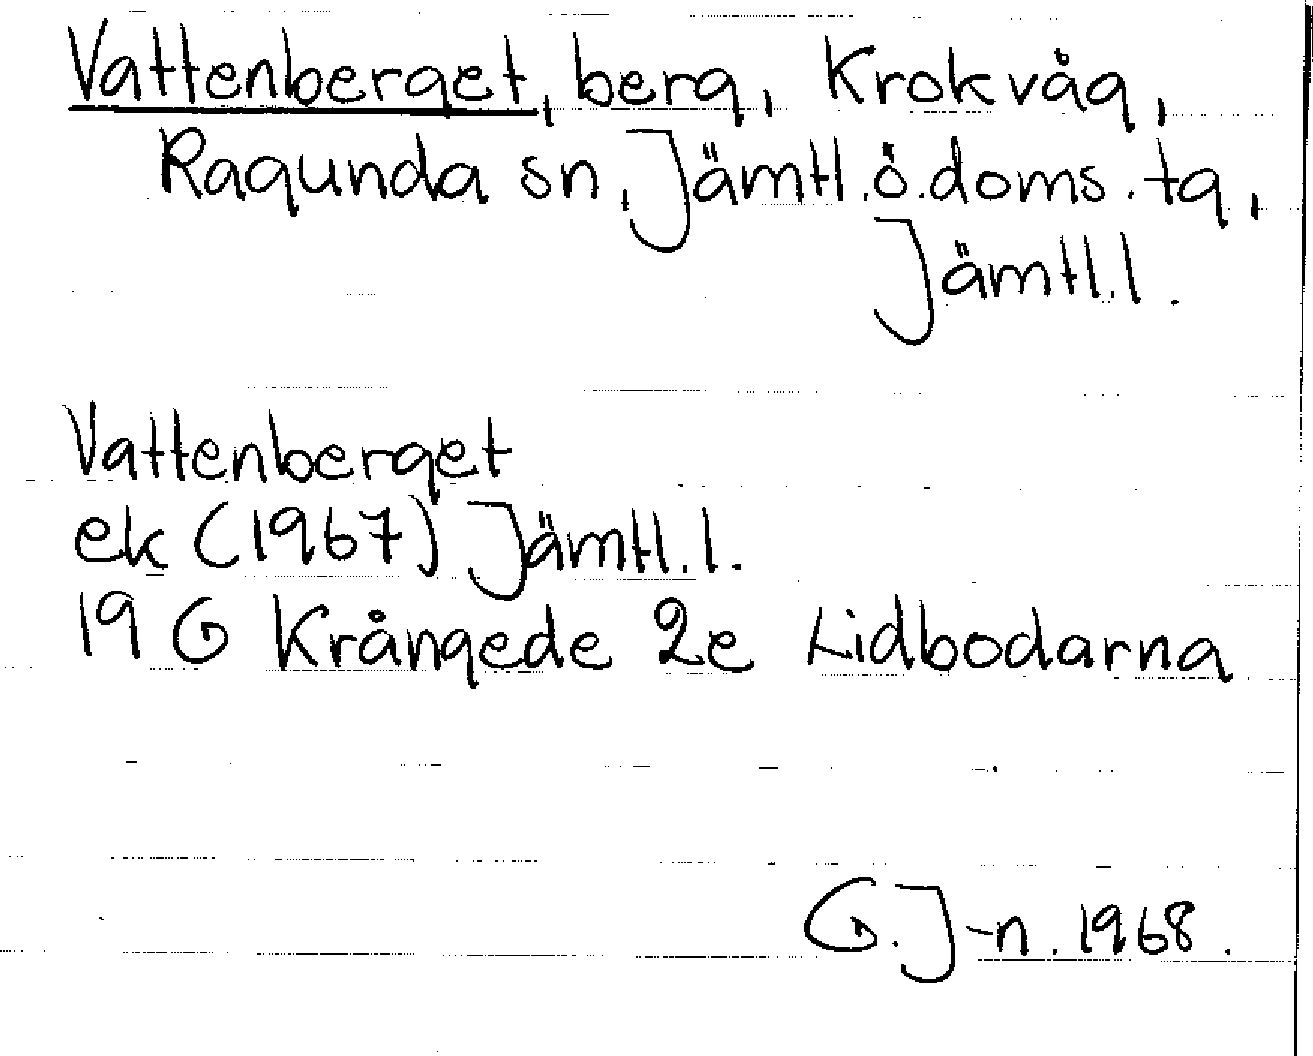 Vattenberget, berg, Krokvåg,
Ragunda sn, Jämtl.ö.doms.tg,
Jämtl.l.
Vattenberget
ek (1967) Jämtl.l.
19 G Krångede 2e Lidbodarna
G.J-n.1968.